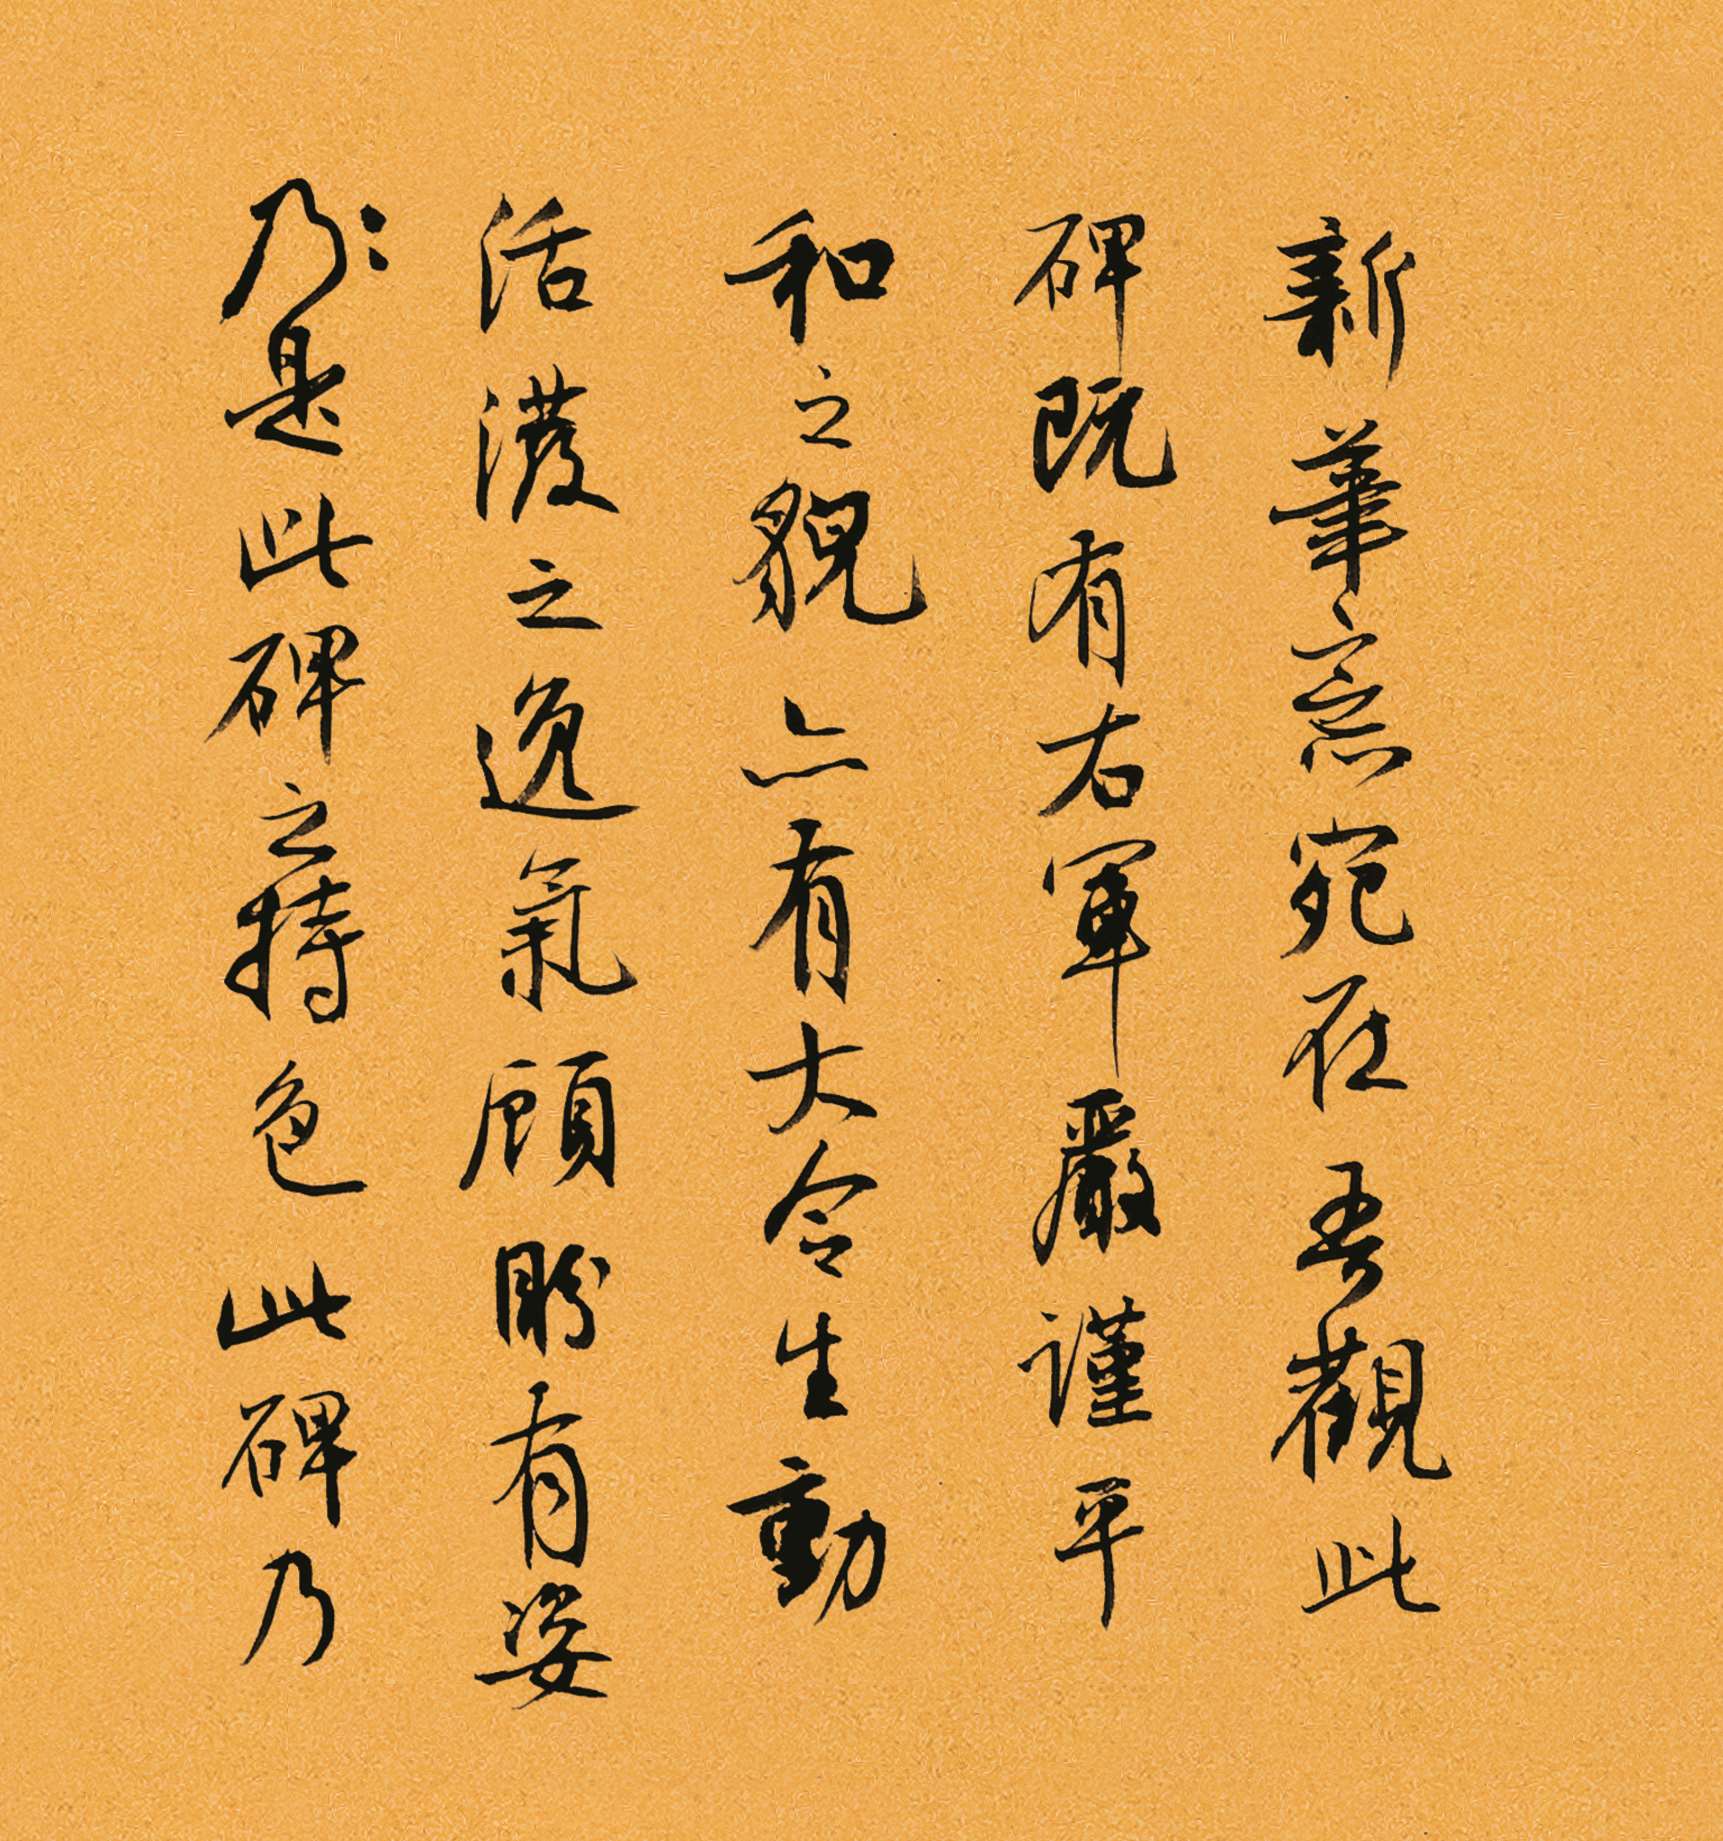 新筆意宛在吾觀此
碑既有右軍嚴謹平
和之貌亦有大令生動
活潑之逸氣顧盼有姿
乃是此碑之特色此碑乃